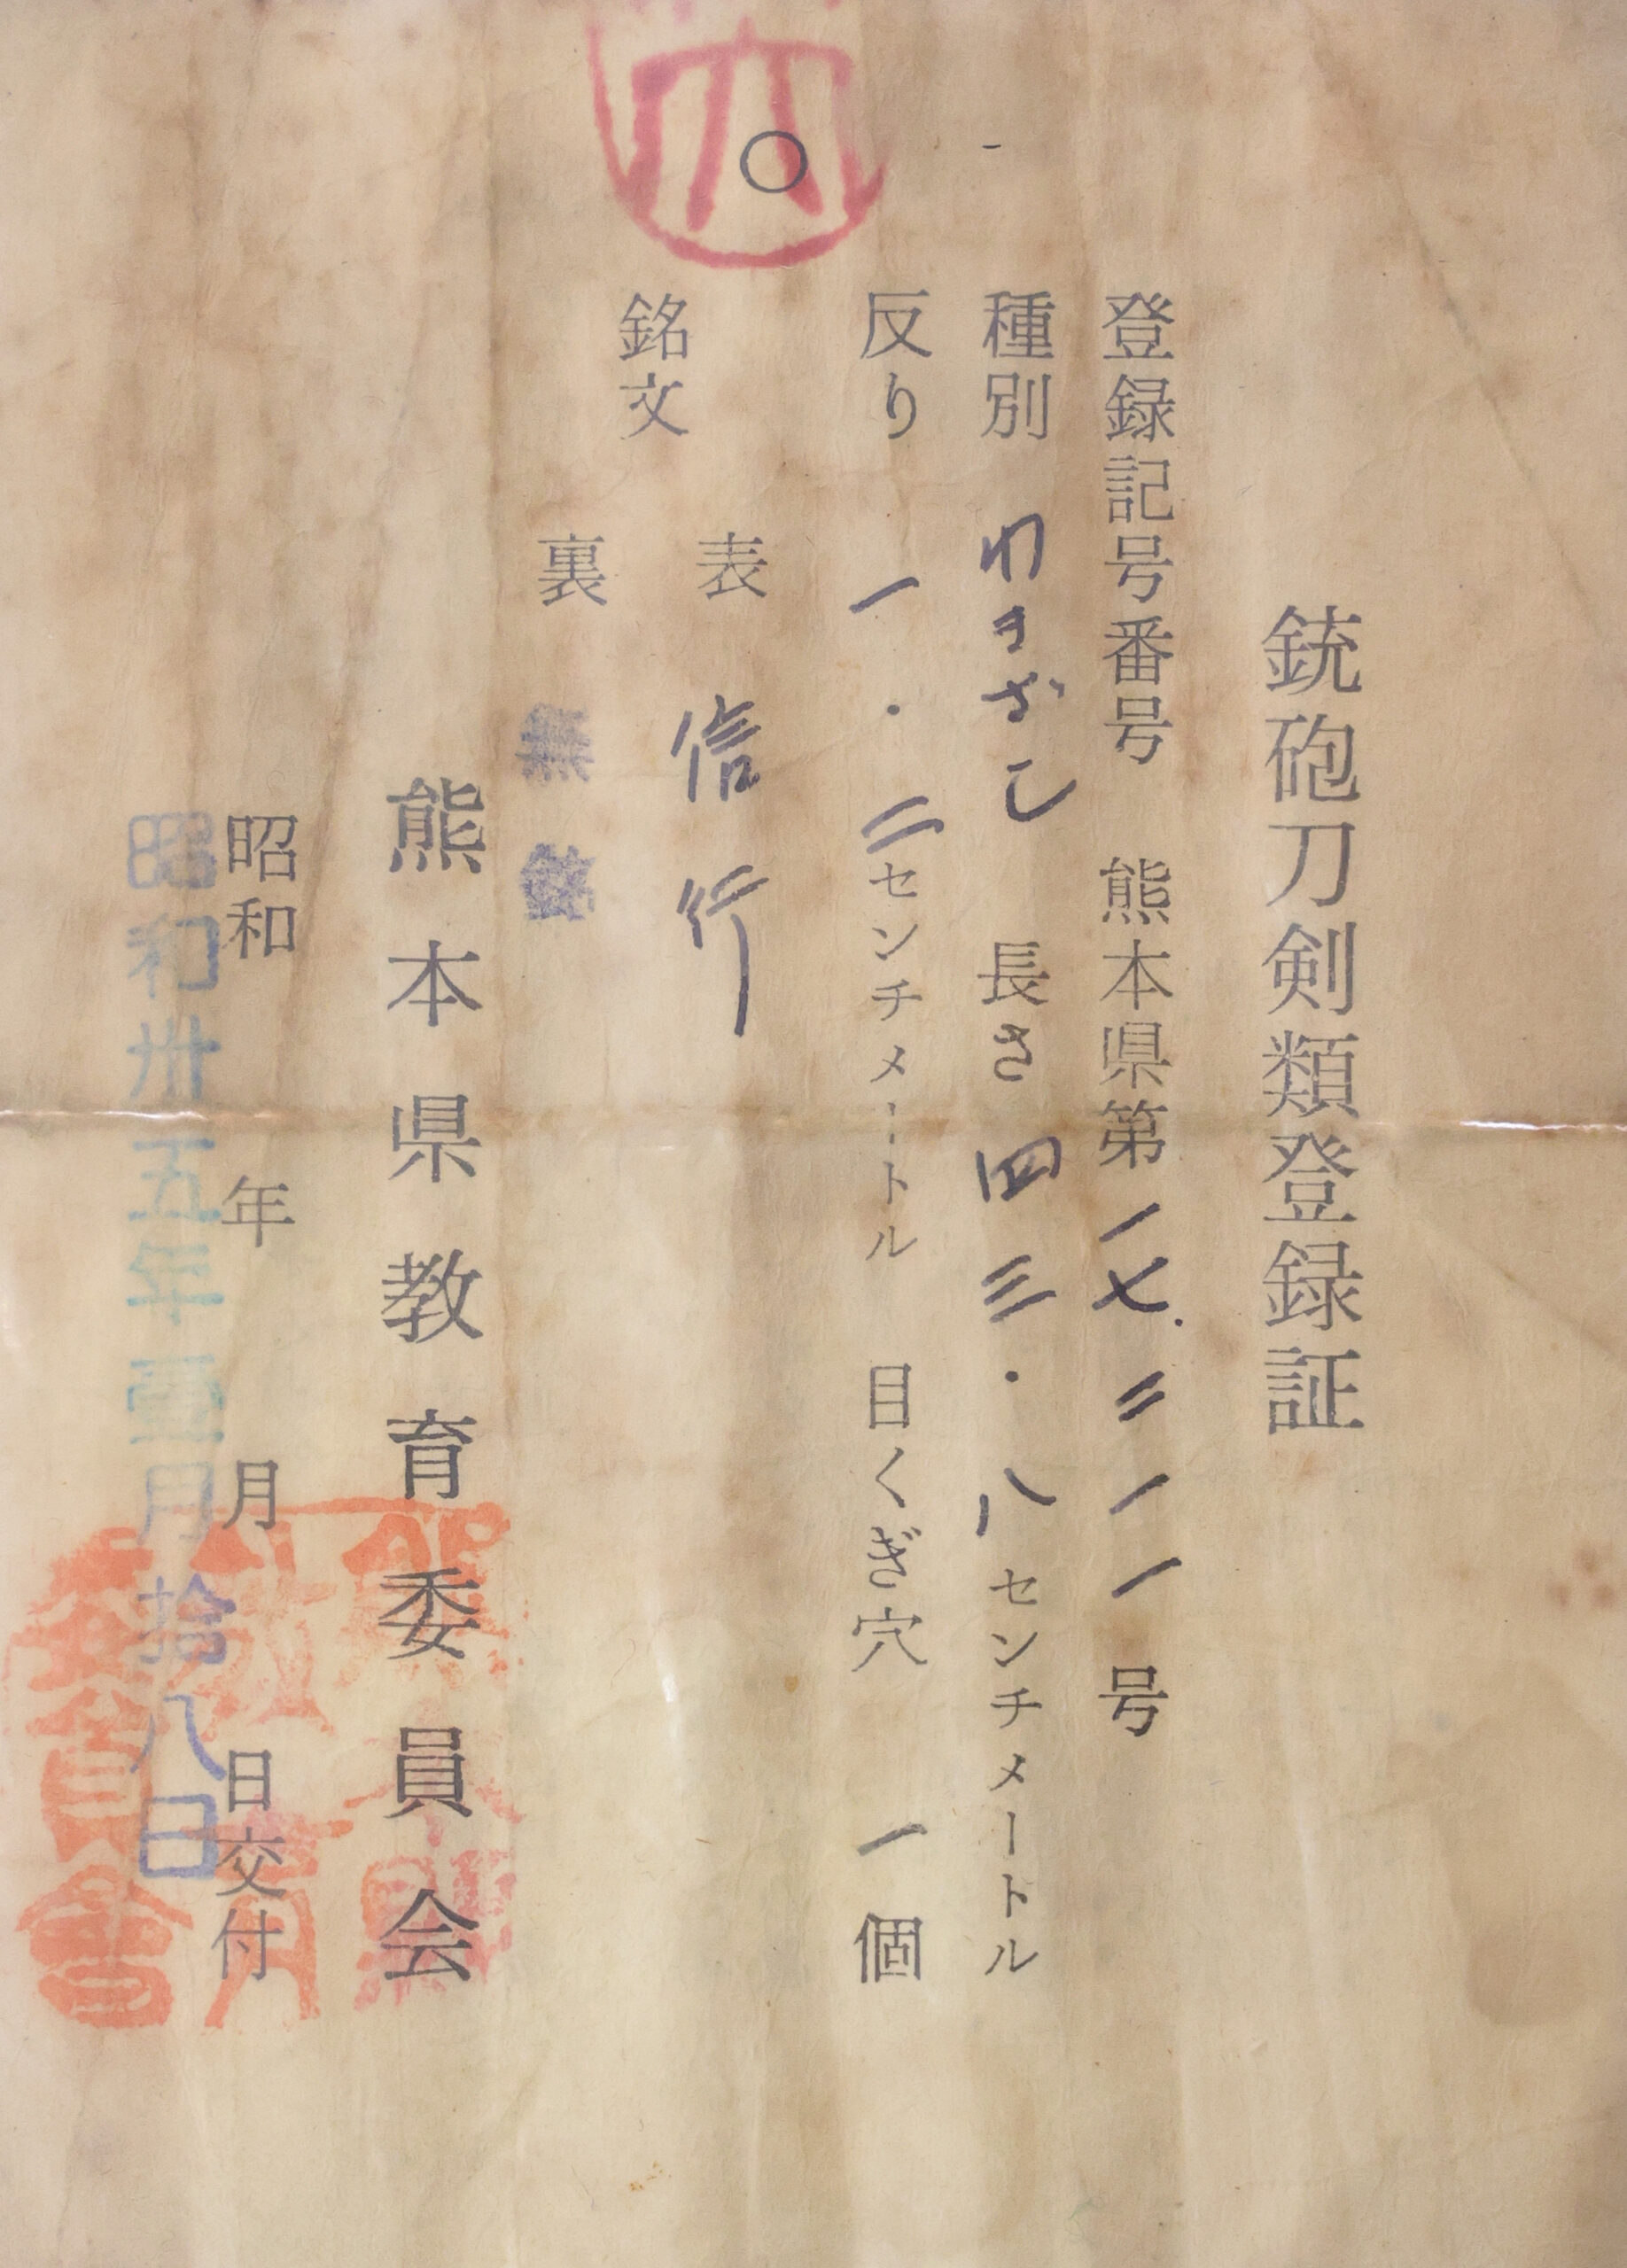 銃砲刀剣類登録証
登録記号番号 熊本県第一七二一一号
種別 わきざし 長さ 四三・八センチメートル
反り 一・二センチメートル 目くぎ穴 一個
銘文
表 信行
裏 無銘
熊本県教育委員会
昭和 年 月 日交付
昭和卅五年壹月拾八日